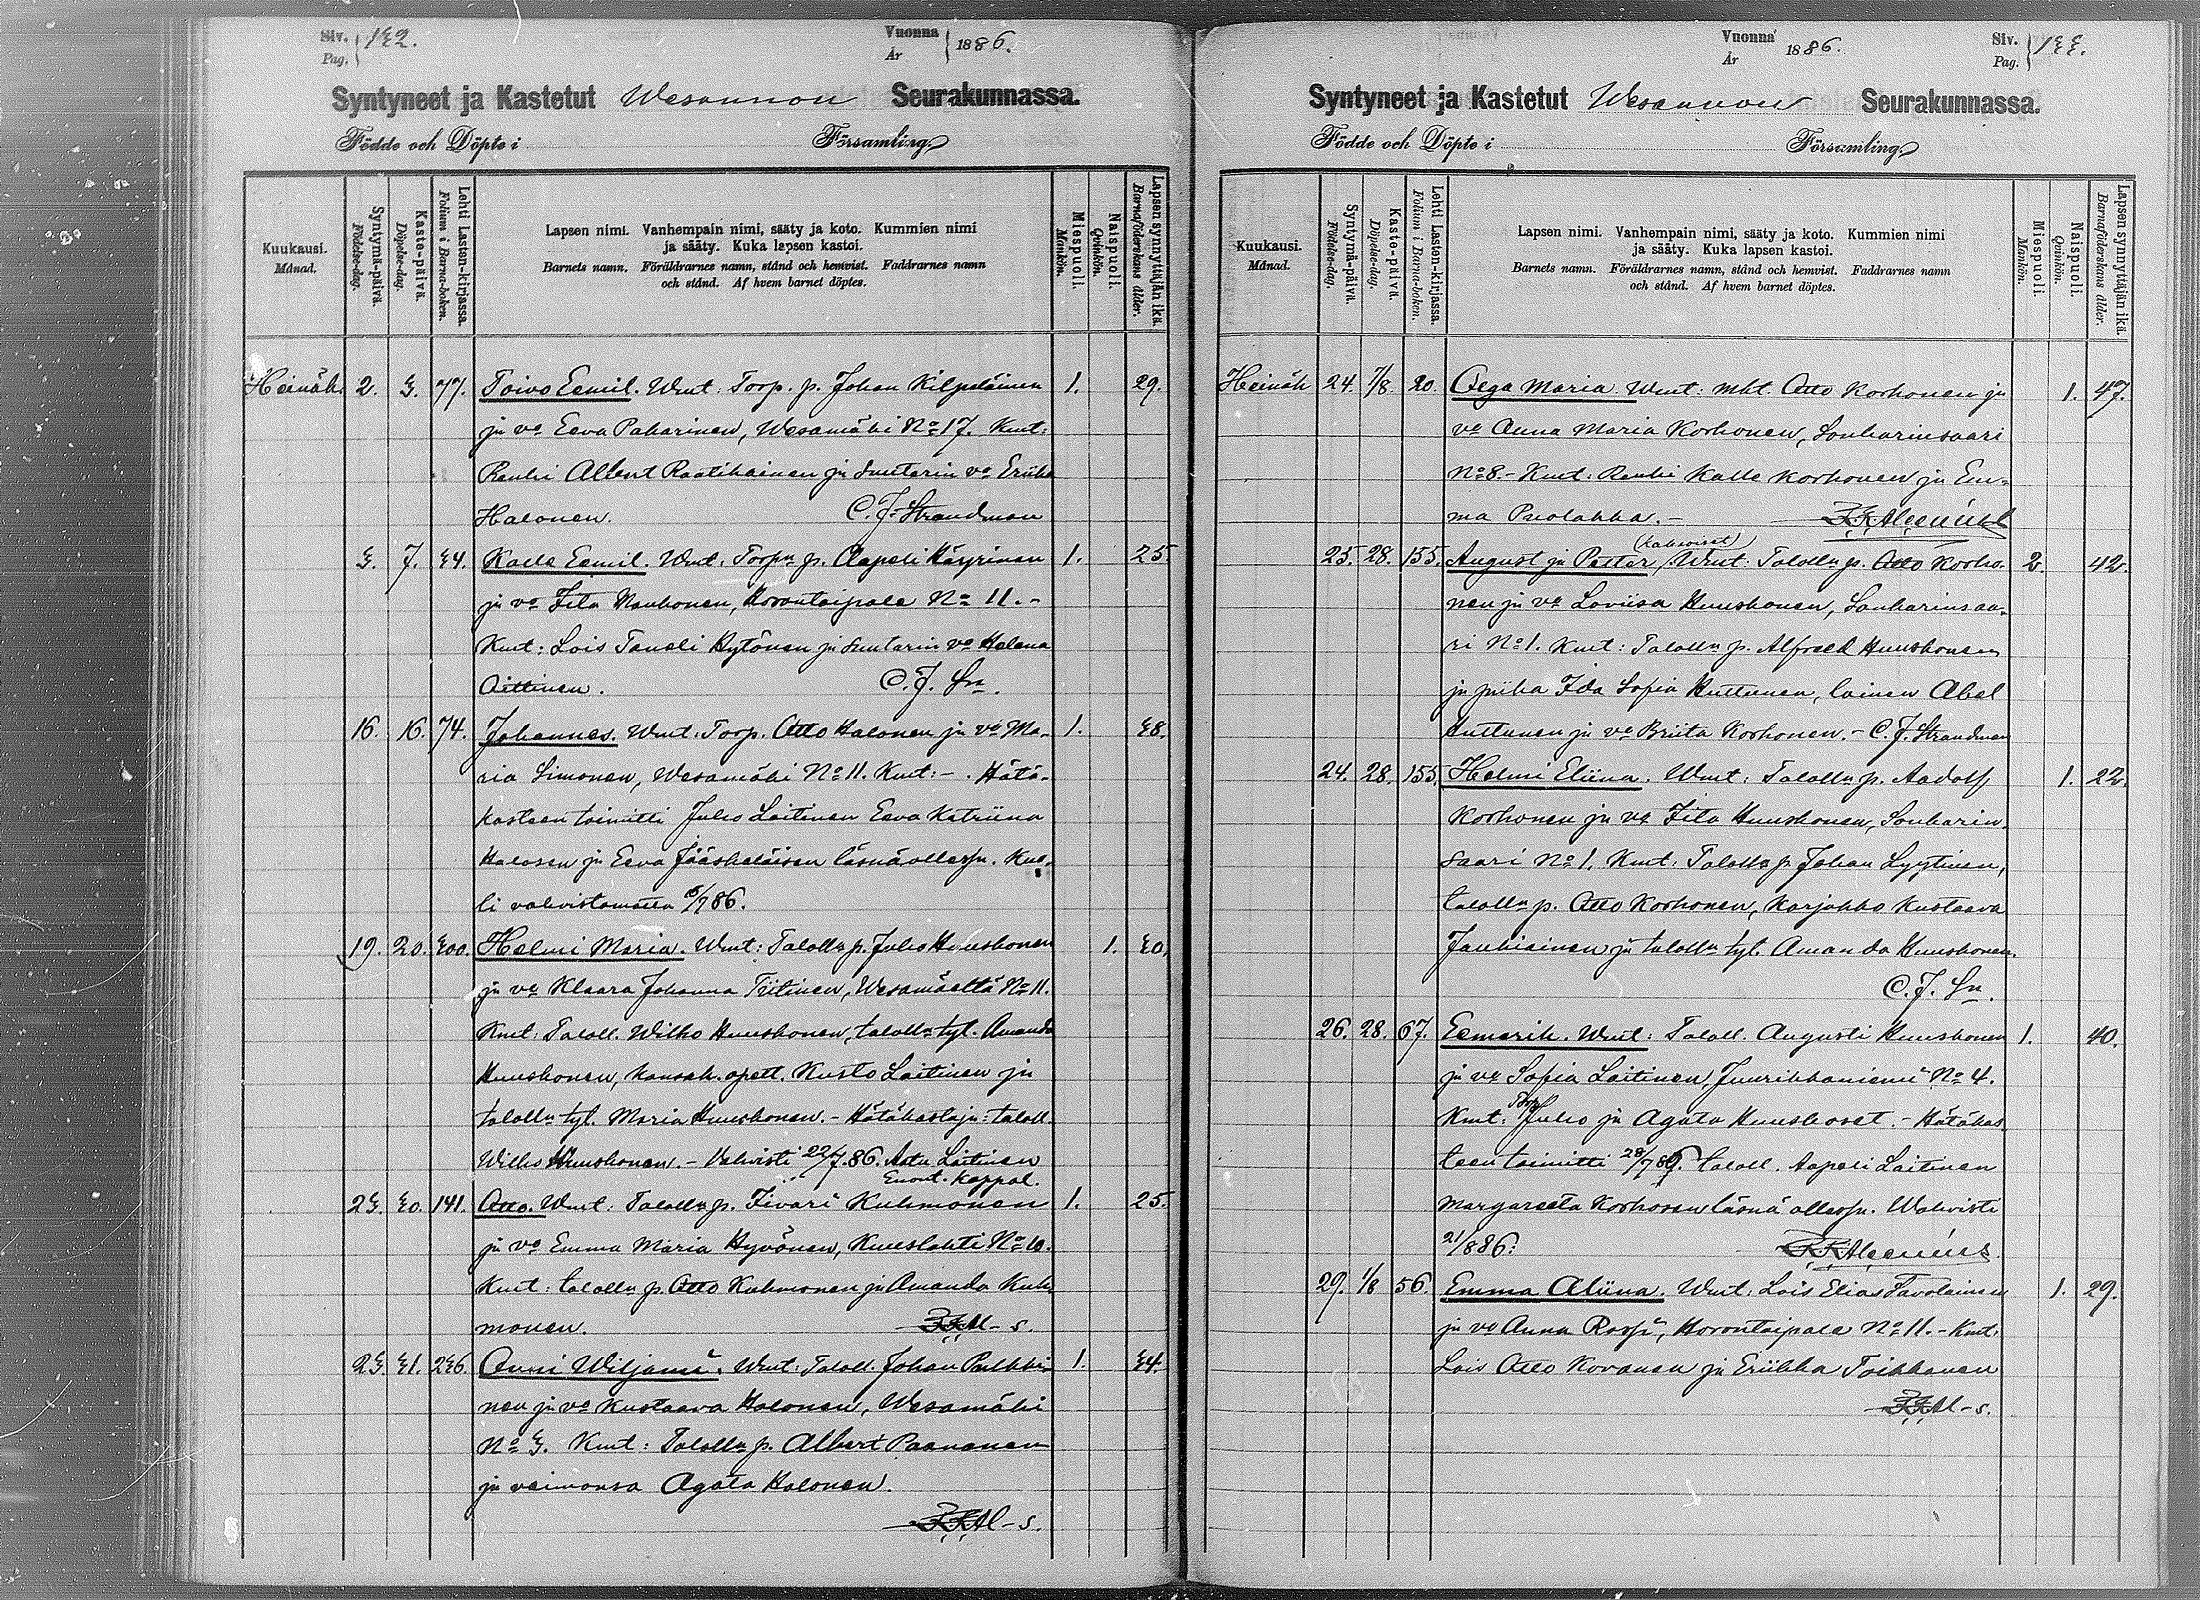 Siv. Pag. } 132.
Vuonna År } 1886.
Syntyneet ja Kastetut Wesannon Seurakunnassa.
Födde och Döpte i Församling
Kuukausi. Månad.
Syntymä-päivä. Födelse-dag.
Kaste-päivä. Döpelse-dag.
Lehti Lasten-kirjassa. Folium i Barna-boken.
Lapsen nimi. Vanhempain nimi, sääty ja koto. Kummien nimi
ja sääty. Kuka lapsen kastoi.
Barnets namn. Föräldrarnes namn, stånd och hemvist. Faddrarnes namn
och stånd. Af hvem barnet döptes.
Miespuoli. Mankön.
Naispuoli. Qvinkön.
Lapsen synnyttäjän ikä. Barnaföderskans ålder.
Heinäk. 2. 3. 77. Toivo Eemil. Wmt: Torp. p. Johan Kilpeläinen 1. 29.
ja vo Eeva Pakarinen, Wesamäki No 17. Kmt:
Renki Albert Raatikainen ja suutarin vo Eriika
Halonen. C. J. Strandman
3. 7. 34. Kalle Eemil. Wmt. Torp:n p. Aapeli Häyrinen 1. 25.
ja vo Fita Kauhonen, Horontaipale No 11. -
Kmt: Lois Taneli Hytönen ja suutarin vo Helena
Oittinen. C. J. Sn.
16. 16. 74. Johannes. Wmt: Torp. Otto Halonen ja vo Ma- 1. 38.
ria Simonen, Wesamäki No 11. Kmt: - . Hätä-
kasteen toimitti Juho Laitinen Eeva Katriina
Halosen ja Eeva Jääskeläisen läsnäollessa. Kuo-
li vahvistamatta /786.
19. 20. 300. Helmi Maria. Wmt: Talolln p. Juho Huuskonen 1. 30.
ja vo Klaara Johanna Tiitinen, Wesamäeltä No 11.
Kmt: Taloll. Wilho Huuskonen, talolln tyt. Amanda
Huuskonen, kansak. opett. Kusto Laitinen ja
talolln tyt. Maria Huuskonen. - Hätäkastaja: taloll.
Wilho Huuskonen. - Vahvisti 22/7.86. Aatu Laitinen
Enont. kappal.
23. 30. 141. Otto. Wmt: Talolln p. Iivari Kuhmonen 1. 25.
ja vo Emma Maria Hyvönen, Kuuslahti No 10.
Kmt: talolln p. Otto Kuhmonen ja Amanda Kuh-
monen. Al-s.
23. 31. 236. Onni Wiljami. Wmt: Taloll. Johan Pulkki- 1. 34.
nen ja vo Kustaava Halonen, Wesamäki
No 3. Kmt: Talolln p. Albert Paananen
ja vaimonsa Agata Halonen.
Al-s.
Vuonna År 1886.
Siv. Pag. } 133.
Syntyneet ja Kastetut Wesannon Seurakunnassa.
Födde och Döpte i Församling
Kuukausi. Månad.
Syntymä-päivä. Födelse-dag.
Kaste-päivä. Döpelse-dag.
Lehti Lasten-kirjassa. Folium i Barna-boken.
Lapsen nimi. Vanhempain nimi, sääty ja koto. Kummien nimi
ja sääty. Kuka lapsen kastoi.
Barnets namn. Föräldrarnes namn, stånd och hemvist. Faddrarnes namn
och stånd. Af hvem barnet döptes.
Miespuoli. Mankön.
Naispuoli. Qvinkön.
Lapsen synnyttäjän ikä. Barnaföderskans ålder.
Heinäk 24. 7/8. 20. Olga Maria. Wmt: mkt. Otto Korhonen ja 1. 47.
vo Anna Maria Korhonen, Sonkarinsaari
No 8. - Kmt: Renki Kalle Korhonen ja Em-
ma Puolakka. -
(kaksoiset)
25. 28. 155. August ja Petter, Wmt: Talolln p. Otto Korho- 2. 42.
nen ja vo Loviisa Huuskonen, Sonkarinsaa-
ri No 1. Kmt: Talolln p. Alfred Huuskonen
ja piika Ida Sofia Huttunen, loinen Abel
Huttunen ja vo Briita Korhonen. - C. J. Strandman
24. 28. 155. Helmi Eliina. Wmt: Talolln p. Aadolf 1. 22.
Korhonen ja vo Fita Huuskonen, Sonkarin-
saari No 1. Kmt: Talolln p. Johan Lyytinen,
talolln p. Otto Korhonen, karjakko Kustaava
Jauhiainen ja talolln tyt. Amanda Huuskonen.
C. J. Sn.
26. 28. 67. Eemerik. Wmt: Taloll. Augusti Huuskonen 1. 40.
ja vo Sofia Laitinen, Juurikkaniemi No 4.
Kmt: Torp. Juho ja Agata Huuskoset. - Hätäkas-
teen toimitti 28/7 86. taloll. Aapeli Laitinen
Margareeta Korhosen läsnä ollessa. Wahvisti
21/8 86:
29. 1/8 56. Emma Aliina. Wmt: Lois Elias Tavolainen 1. 29.
ja vo Anna Rossi, Horontaipale No 11. - Kmt:
Lois Otto Kovanen ja Eriikka Toikkanen
Al-s.